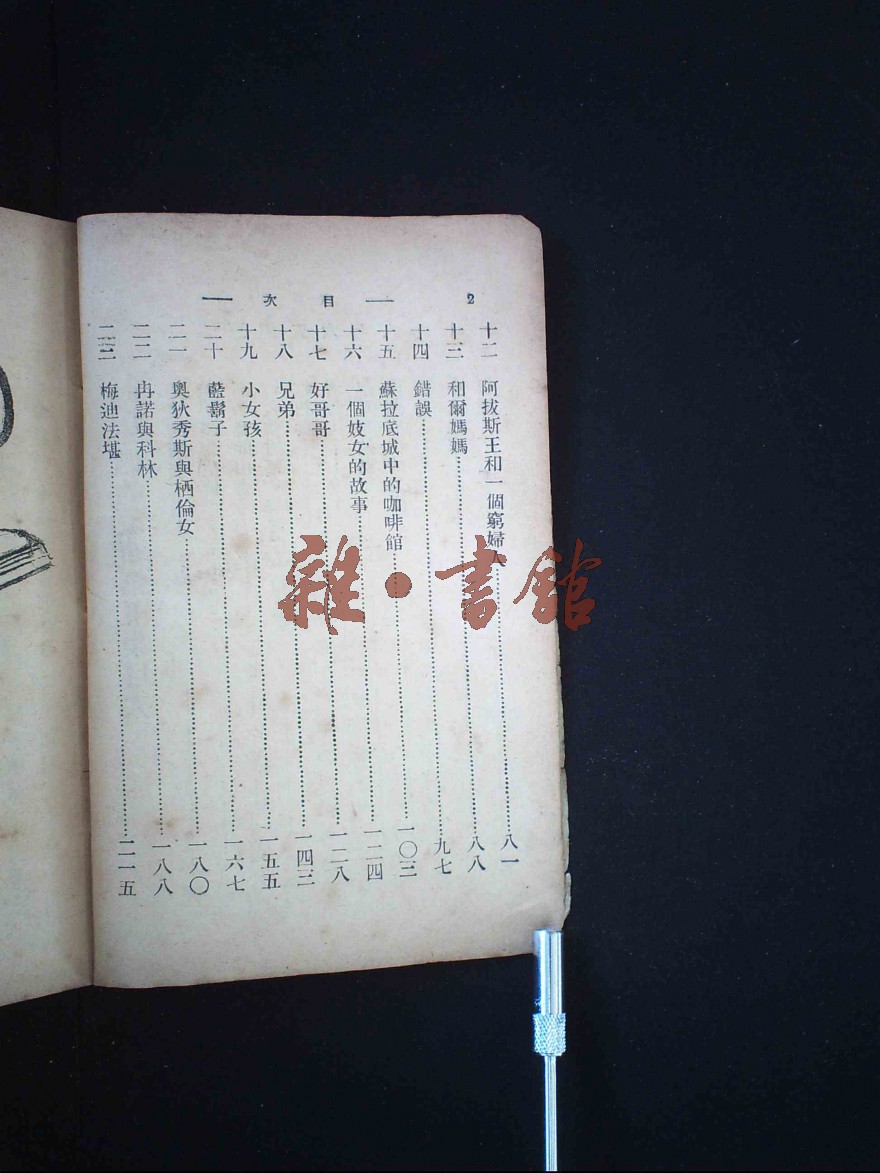 2 — 目次 —
十二 阿拔斯王和一個窮婦人…………八一
十三 和爾媽媽…………八八
十四 錯誤…………九七
十五 蘇拉底城中的咖啡館…………一〇三
十六 一個妓女的故事…………一二四
十七 好哥哥…………一二八
十八 兄弟…………一四三
十九 小女孩…………一五五
二十 藍鬍子…………一六七
二一 奧狄秀斯與栖倫女…………一八〇
二二 冉諾與科林…………一八八
二三 梅迪法堪…………二一五
雜·書館